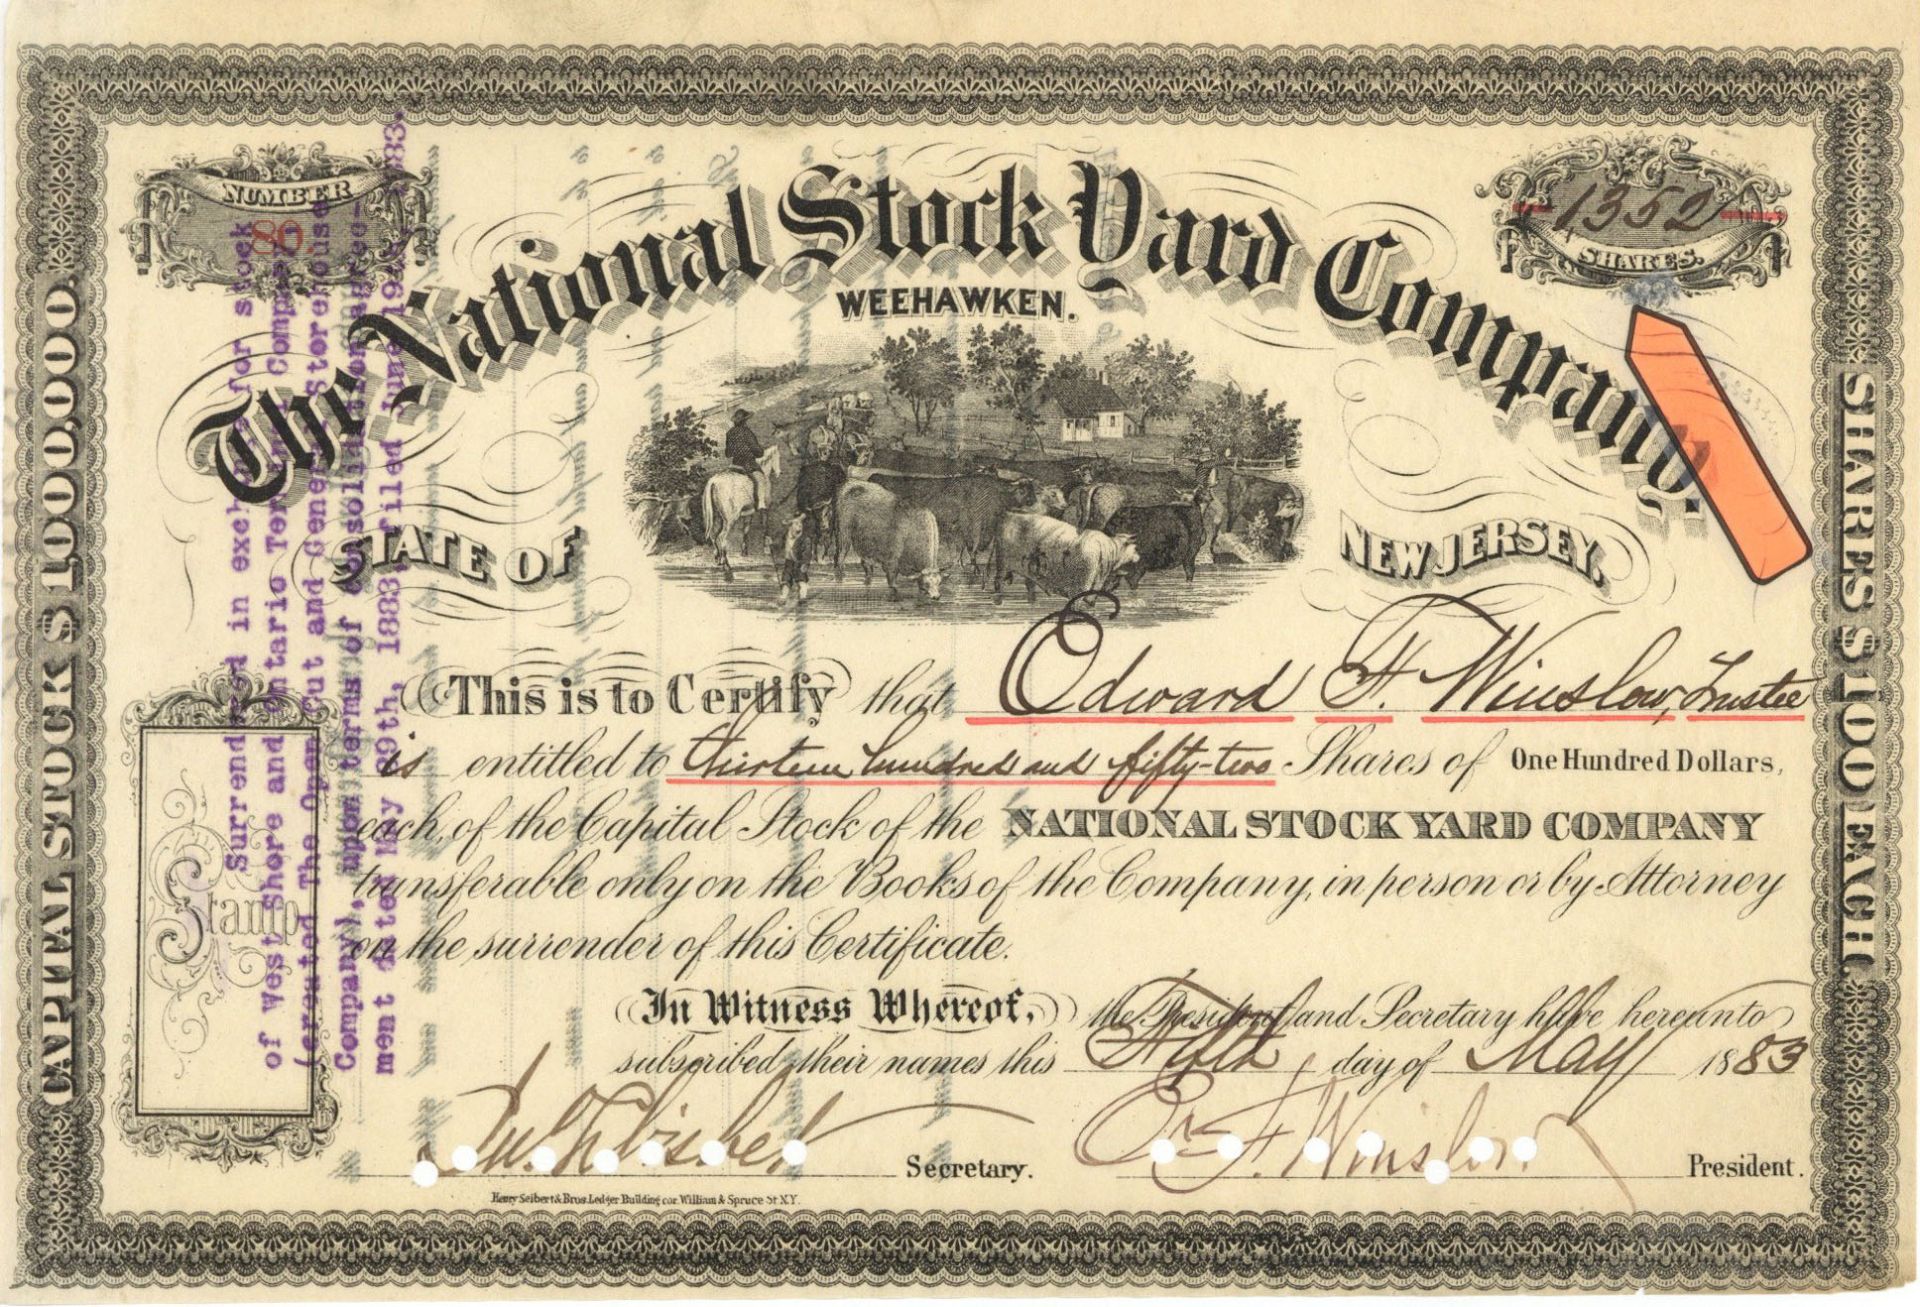 NUMBER
8
1352
SHARES.
The National Stock Yard Company.
WEEHAWKEN.
STATE OF
NEW JERSEY.
CAPITAL STOCK $1,000,000.
SHARES $100 EACH.
This is to Certify that Edward F. Winslow, Trustee
is entitled to thirteen hundred and fifty-two Shares of One Hundred Dollars,
each, of the Capital Stock of the NATIONAL STOCK YARD COMPANY
transferable only on the Books of the Company, in person or by Attorney
on the surrender of this Certificate.
In Witness Whereof, the President and Secretary have hereunto
subscribed their names this Fifth day of May 1883
Secretary.
E. F. Winslow
President.
Henry Seibert & Bros. Ledger Building cor. William & Spruce St N.Y.
Stamp
Surrendered in exchange for stock
of West Shore and Ontario Terminal Company
(created The Open Cut and General Storehouse
Company), upon terms of consolidation agree-
ment dated May 29th, 1883, filed June 19th, 1883.